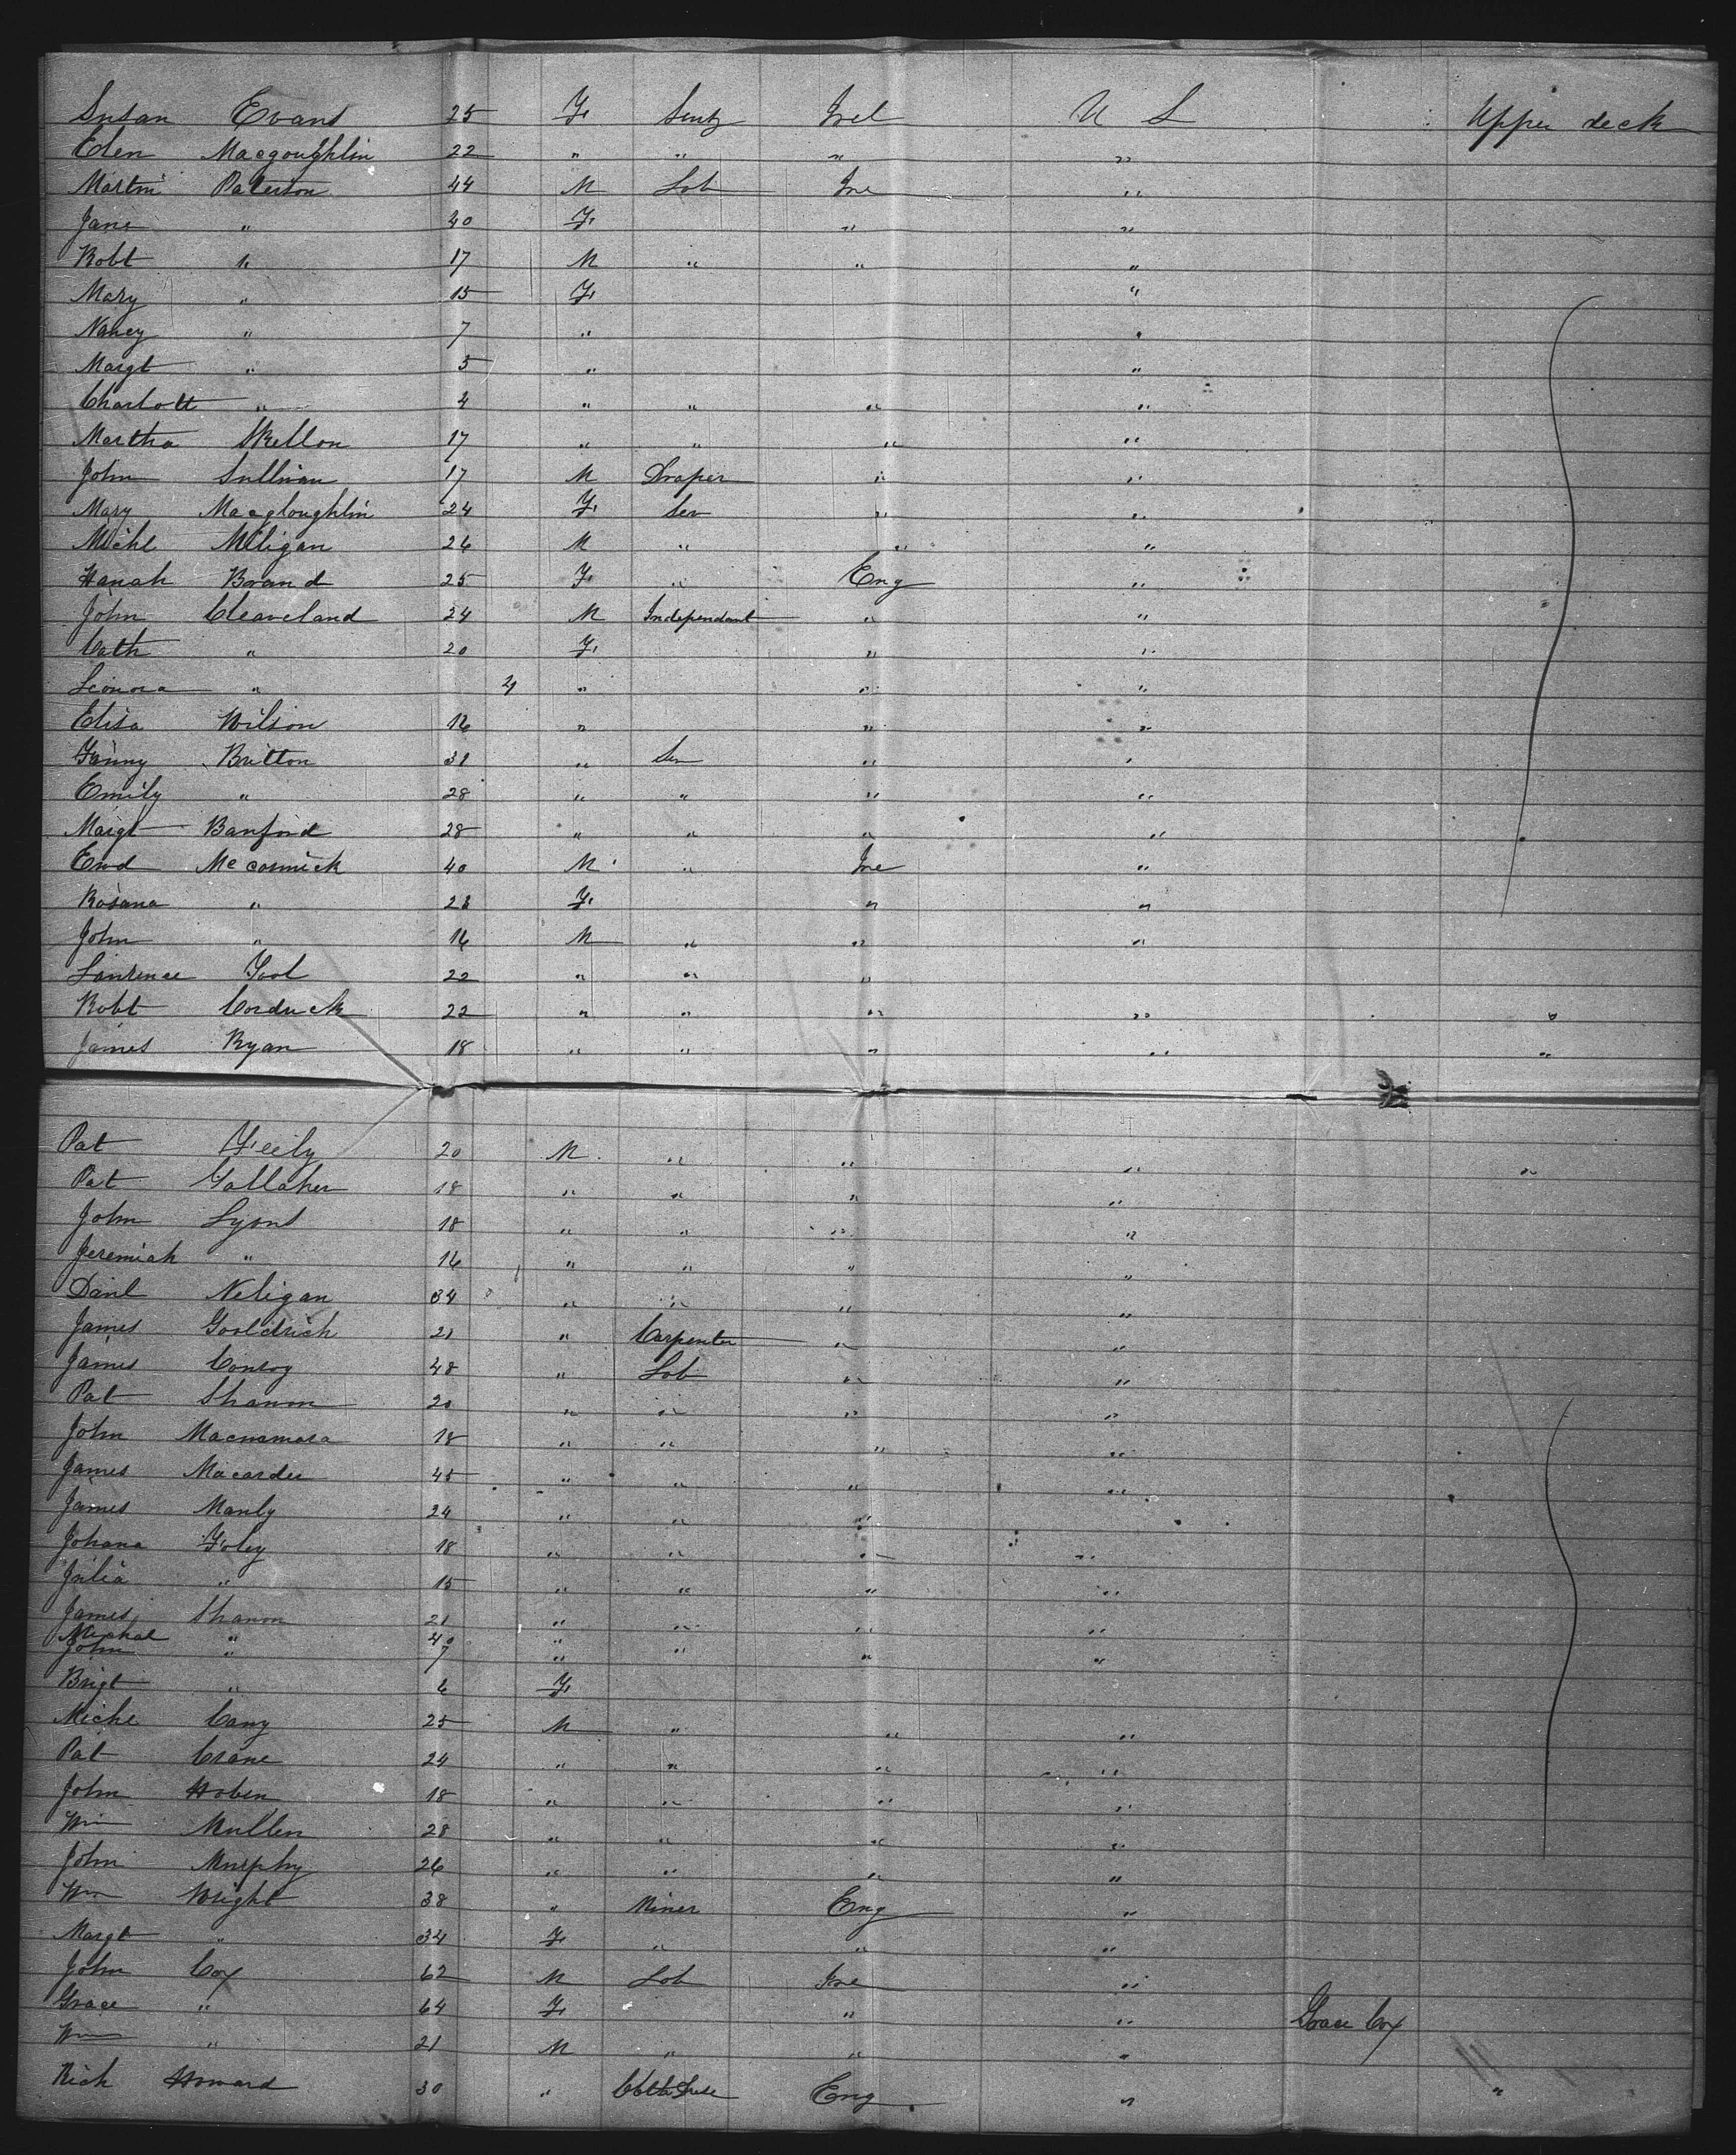 Susan Evans 25 F Irel U S Upper deck
Eden Macgoughlin 22 " " " "
Martin Paterson 44 M Lab Ire "
Jane " 40 F " "
Robt " 17 M " " "
Mary " 15 F "
Nancy " 7 " "
Margt " 5 " "
Charlott " 4 " " " "
Martha Skellon 17 " " " "
John Sullivan 17 M Draper " "
Mary Macgloughlin 24 F Ser " "
Michl Miligan 26 M " " "
Hanah Brand 25 F " Eng "
John Cleaveland 24 M Independant " "
Cath " 20 F " "
Leonora " 4 " " "
Elisa Wilson 16 " " "
Fanny Britton 31 " Ser " "
Emily " 28 " " " "
Margt Banford 28 " " " "
Ewd McCormick 40 M " Ire "
Rosana " 28 F " "
John " 16 M " " "
Laurence Fool 22 " " "
Robt Corduck 22 " " " " "
James Ryan 18 " " " " "
Pat Feely 20 M " " " "
Pat Gallaher 18 " " " "
John Lyons 18 " " " "
Jeremiah " 16 " " " "
Danl Neligan 34 " " " "
James Gooldrich 21 " Carpenter " "
James Conroy 48 " Lab " "
Pat Shanon 20 " " " "
John Macnamara 18 " " " "
James Macardee 45 " " " "
James Manly 24 " " "
Johana Foley 18 " " " "
Julia " 15 " " " "
James Shanon 21 " " " "
Michal " 40 " "
John " 7 " " "
Brigt " 6 F
Michl Cany 25 M " " "
Pat Crane 24 " " " "
John Hoben 18 " " " "
Wm Mullen 28 " " " "
John Murphy 26 " " " "
Wm Wright 38 " Miner Eng "
Margt " 34 F " " "
John Cox 62 M Lab Ire "
Grace " 64 F " " Grace Cox
Wm " 21 M " " "
Rich Howard 30 " Eng " "